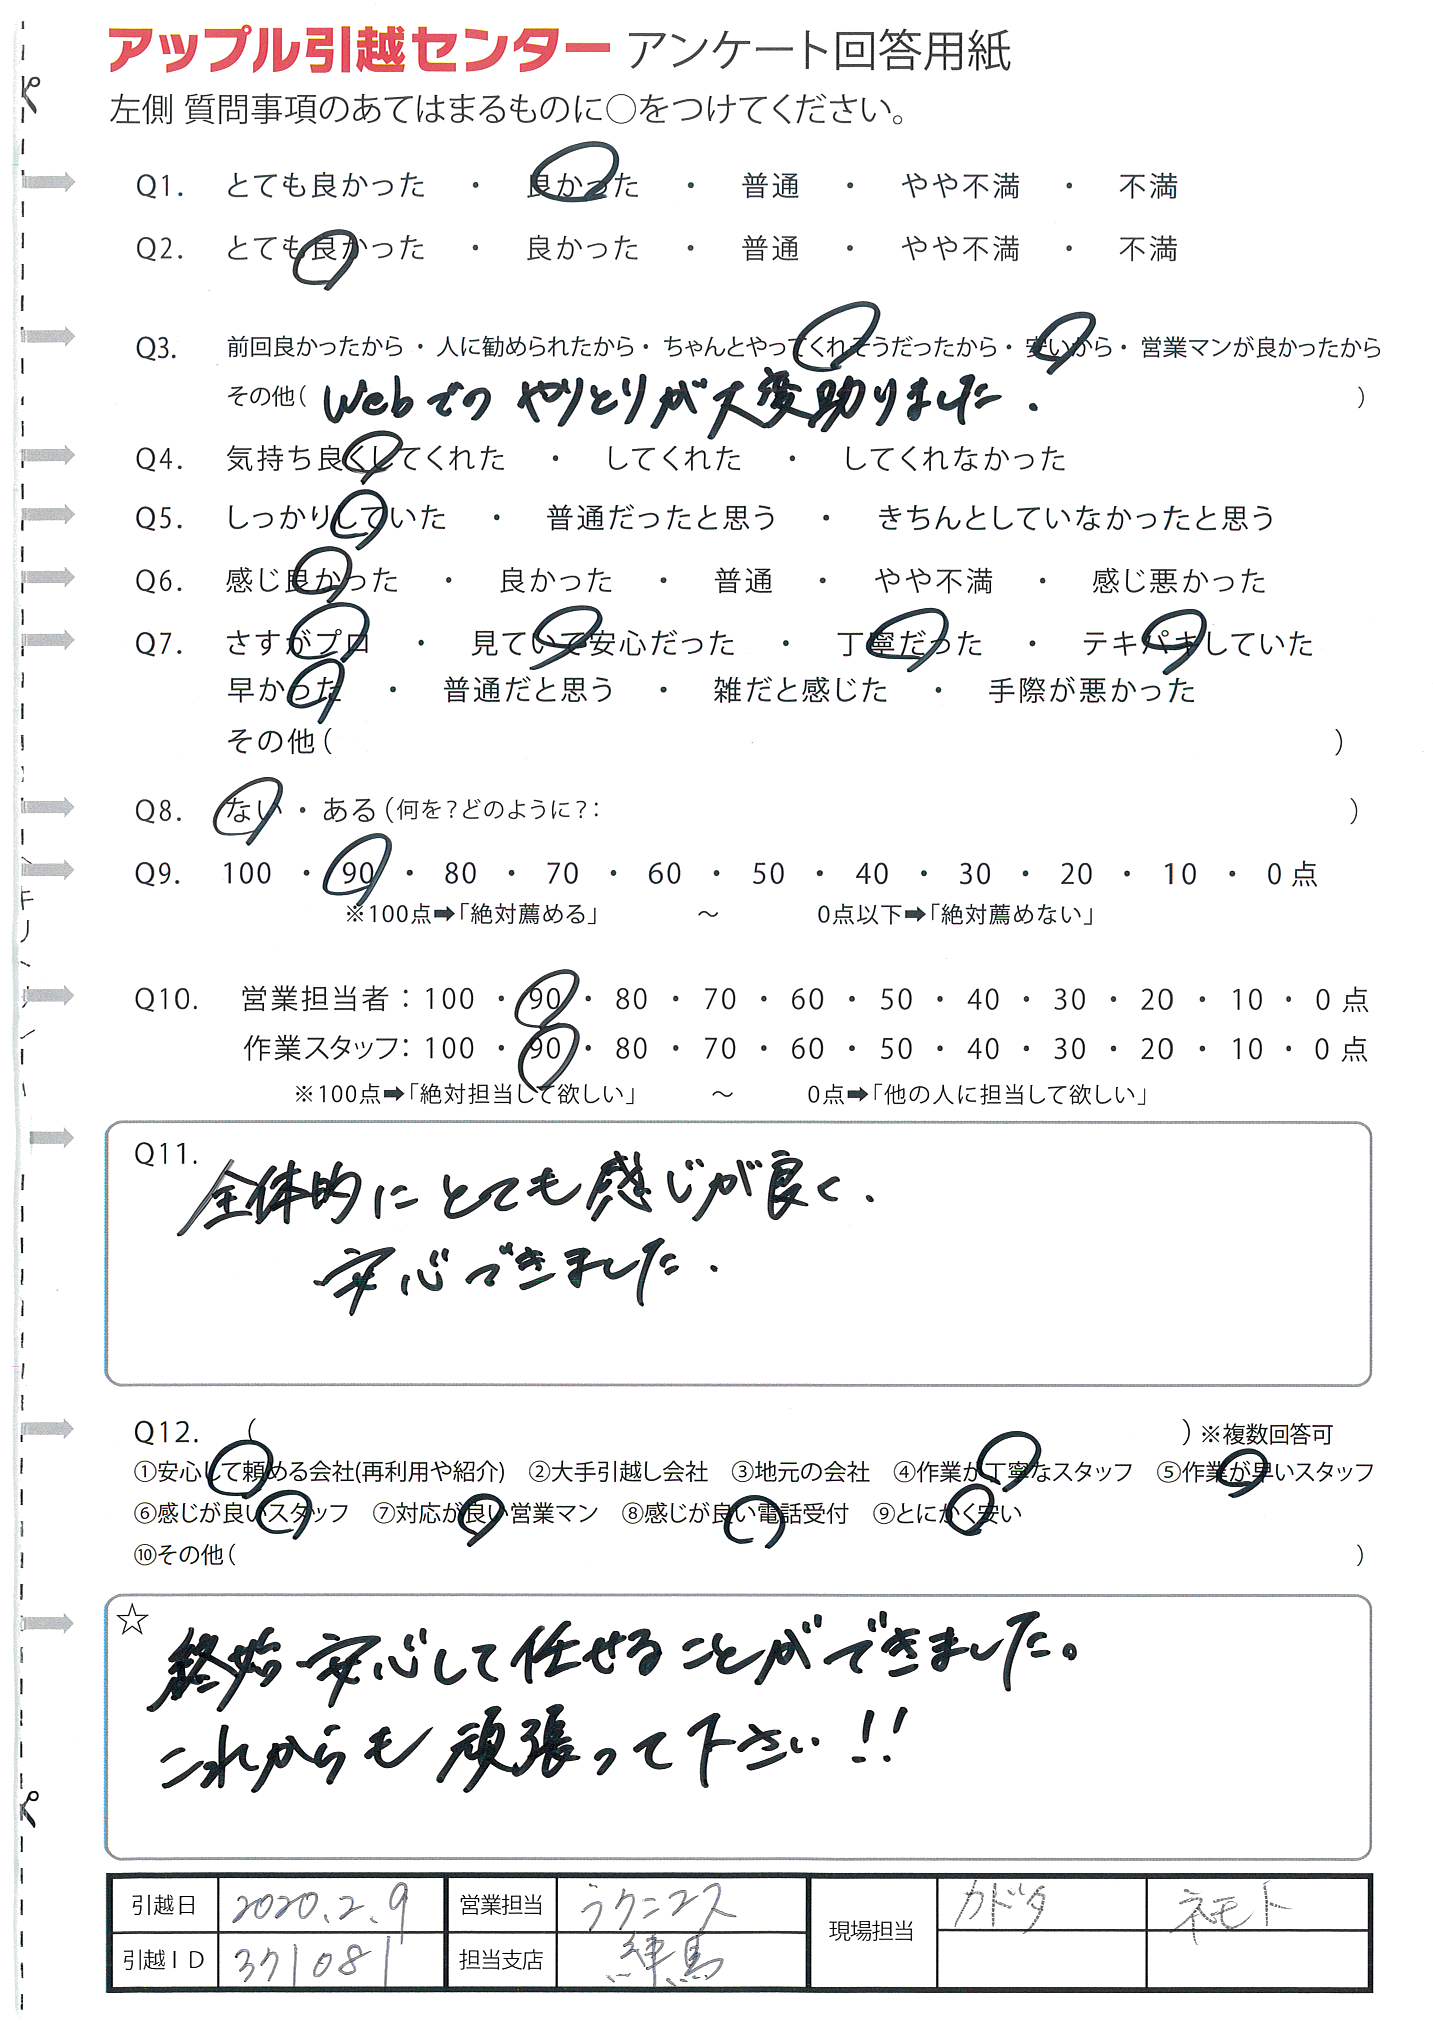 アップル引越センター アンケート回答用紙
左側 質問事項のあてはまるものに○をつけてください。
Q1. とても良かった ・ 良かった ・ 普通 ・ やや不満 ・ 不満
Q2. とても良かった ・ 良かった ・ 普通 ・ やや不満 ・ 不満
Q3. 前回良かったから・人に勧められたから・ちゃんとやってくれそうだったから・安いから・営業マンが良かったから
その他( Webでの やりとりが大変助りました. )
Q4. 気持ち良くしてくれた ・ してくれた ・ してくれなかった
Q5. しっかりしていた ・ 普通だったと思う ・ きちんとしていなかったと思う
Q6. 感じ良かった ・ 良かった ・ 普通 ・ やや不満 ・ 感じ悪かった
Q7. さすがプロ ・ 見ていて安心だった ・ 丁寧だった ・ テキパキしていた
早かった ・ 普通だと思う ・ 雑だと感じた ・ 手際が悪かった
その他( )
Q8. ない・ある(何を?どのように?: )
Q9. 100 ・ 90 ・ 80 ・ 70 ・ 60 ・ 50 ・ 40 ・ 30 ・ 20 ・ 10 ・ 0点
※100点➡「絶対薦める」 ～ 0点以下➡「絶対薦めない」
Q10. 営業担当者：100 ・ 90 ・ 80 ・ 70 ・ 60 ・ 50 ・ 40 ・ 30 ・ 20 ・ 10 ・ 0点
作業スタッフ：100 ・ 90 ・ 80 ・ 70 ・ 60 ・ 50 ・ 40 ・ 30 ・ 20 ・ 10 ・ 0点
※100点➡「絶対担当して欲しい」 ～ 0点➡「他の人に担当して欲しい」
Q11.
全体的に とても感じが良く.
安心できました.
Q12. ( )※複数回答可
①安心して頼める会社(再利用や紹介) ②大手引越し会社 ③地元の会社 ④作業が丁寧なスタッフ ⑤作業が早いスタッフ
⑥感じが良いスタッフ ⑦対応が良い営業マン ⑧感じが良い電話受付 ⑨とにかく安い
⑩その他( )
☆
終始 安心して任せることができました。
これからも頑張って下さい!!
引越日 2020.2.9 営業担当 ラクニコス 現場担当 カドタ ネモト
引越ID 371081 担当支店 練馬
キリトリ